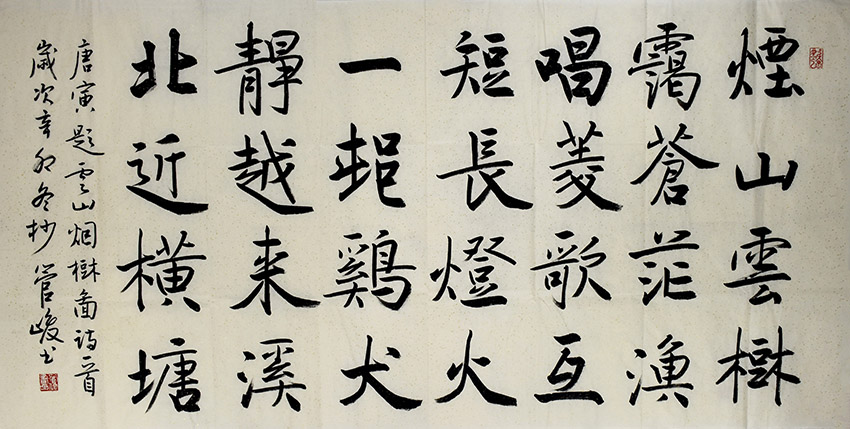 煙山雲樹
靄蒼茫漁
唱菱歌互
短長燈火
一邨鷄犬
靜越来溪
北近橫塘
唐寅題雲山烟樹圖詩一首
歲次辛卯冬杪管峻书